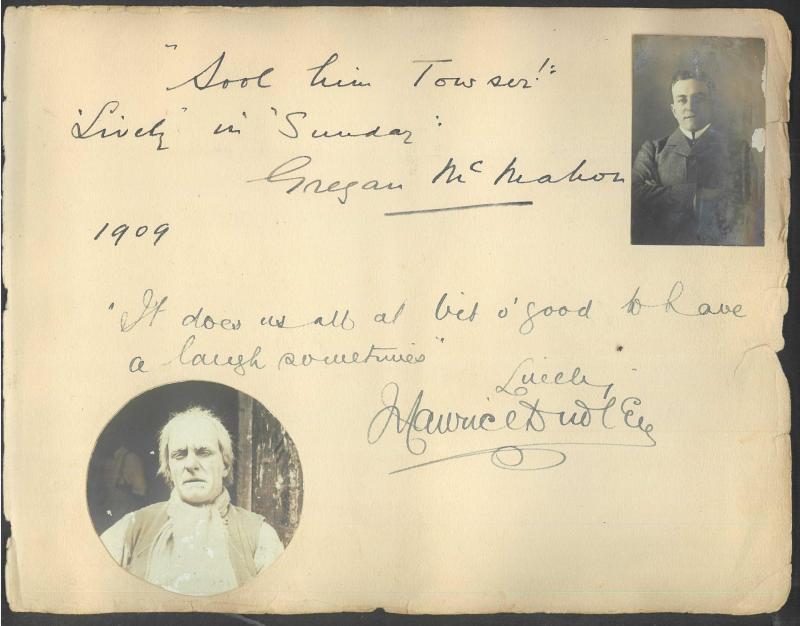 "Sool him Towser!"
"Lively" in "Sunday".
Gregan McMahon
1909
"It does us all al bit o' good to have
a laugh sometimes"
Maurice Dudley